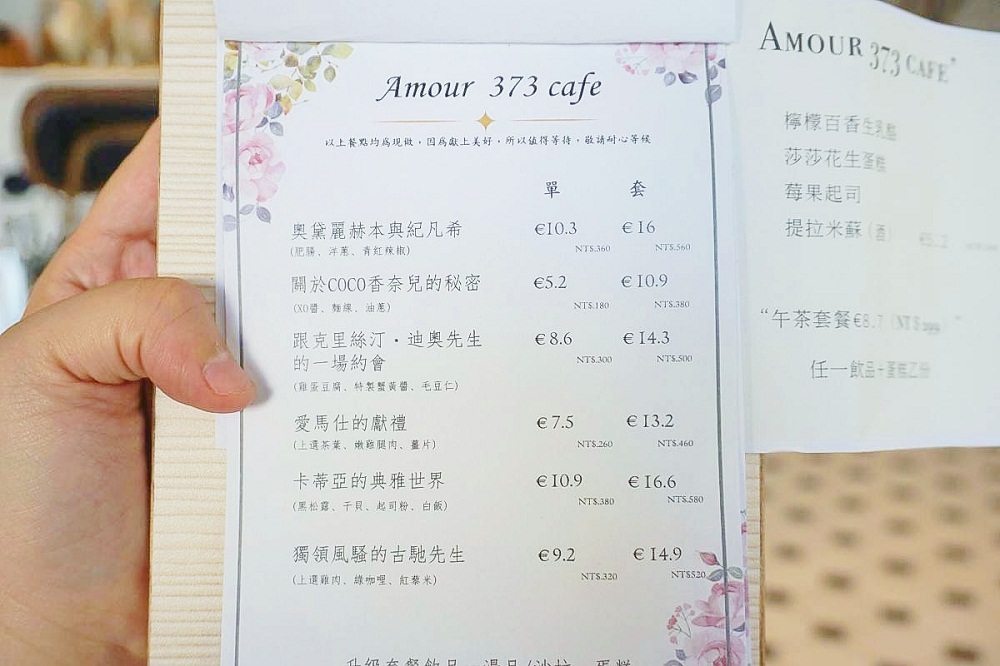 Amour 373 cafe
以上餐點均為現做，因為獻上美好，所以值得等待，敬請耐心等候
單 套
奧黛麗赫本與紀凡希 €10.3 €16
(肥腸、洋蔥、青紅辣椒) NT$.360 NT$.560
關於COCO香奈兒的秘密 €5.2 €10.9
(XO醬、麵線、油蔥) NT$.180 NT$.380
跟克里絲汀・迪奧先生 €8.6 €14.3
的一場約會 NT$.300 NT$.500
(雞蛋豆腐、特製蟹黃醬、毛豆仁)
愛馬仕的獻禮 €7.5 €13.2
(上選茶葉、嫩雞腿肉、薑片) NT$.260 NT$.460
卡蒂亞的典雅世界 €10.9 €16.6
(黑松露、干貝、起司粉、白飯) NT$.380 NT$.580
獨領風騷的古馳先生 €9.2 €14.9
(上選雞肉、綠咖哩、紅藜米) NT$.320 NT$520
升級套餐飲品 湯品/沙拉 蛋糕
AMOUR 373 CAFE
檸檬百香生乳酪
莎莎花生蛋糕
莓果起司
提拉米蘇(酒) €5.2
“午茶套餐€8.7 (NT$299)”
任一飲品+蛋糕乙份